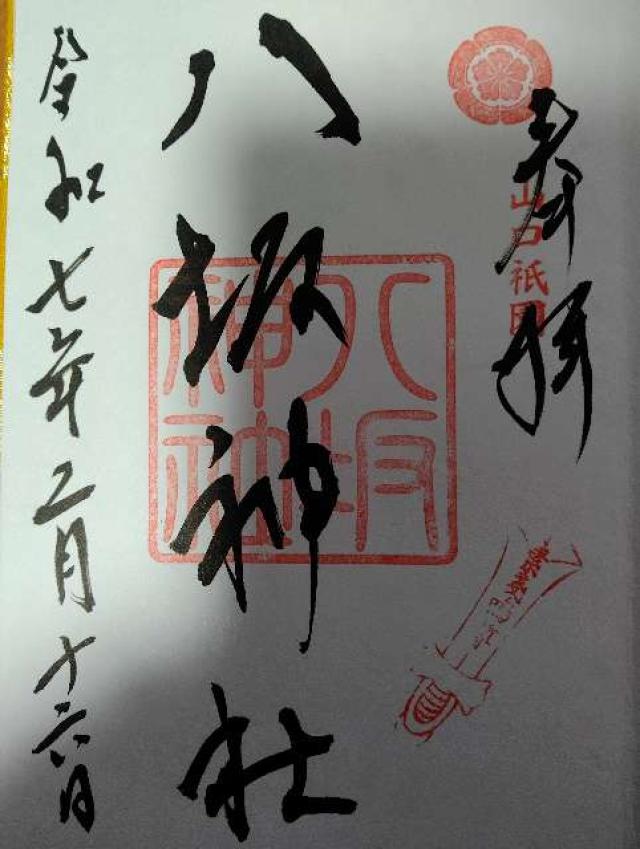 奉拝
山口祇園
八坂神社
八坂神社
令和七年二月十六日